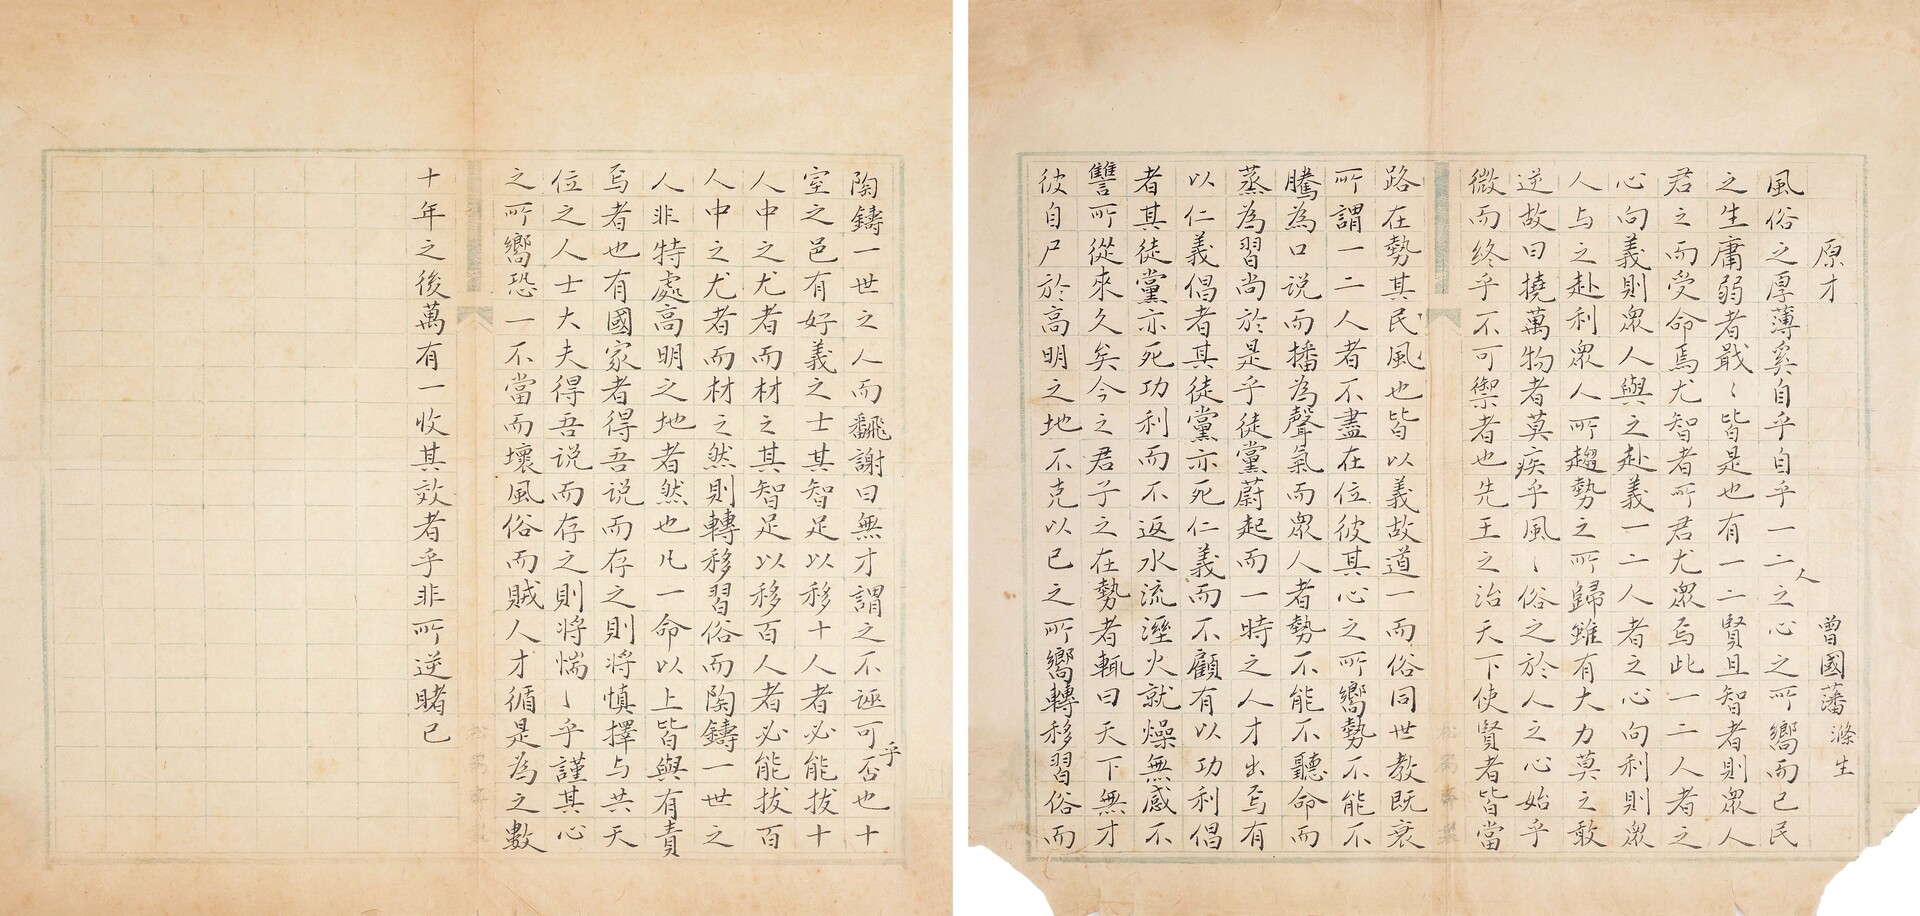 原才　曾國藩滌生
風俗之厚薄奚自乎自乎一二人之心之所嚮而已民
之生庸弱者戢〻皆是也有一二賢且智者則眾人
君之而受命焉尤智者所君尤眾焉此一二人者之
心向義則眾人與之赴義一二人者之心向利則眾
人与之赴利眾人所趨勢之所歸雖有大力莫之敢
逆故曰撓萬物者莫疾乎風〻俗之於人之心始乎
微而終乎不可禦者也先王之治天下使賢者皆當
路在勢其民風也皆以義故道一而俗同世教既衰
所謂一二人者不盡在位彼其心之所嚮勢不能不
騰為口說而播為聲氣而眾人者勢不能不聽命而
蒸為習尚於是乎徒黨蔚起而一時之人才出焉有
以仁義倡者其徒黨亦死仁義而不顧有以功利倡
者其徒黨亦死功利而不返水流溼火就燥無感不
讐所從來久矣今之君子之在勢者輒曰天下無才
彼自尸於高明之地不克以己之所嚮轉移習俗而
陶鑄一世之人而飜謝曰無才謂之不誣可乎否也十
室之邑有好義之士其智足以移十人者必能拔十
人中之尤者而材之其智足以移百人者必能拔百
人中之尤者而材之然則轉移習俗而陶鑄一世之
人非特處高明之地者然也凡一命以上皆與有責
焉者也有國家者得吾說而存之則將慎擇与共天
位之人士大夫得吾說而存之則將惴〻乎謹其心
之所嚮恐一不當而壞風俗而賊人才循是為之數
十年之後萬有一收其效者乎非所逆睹已